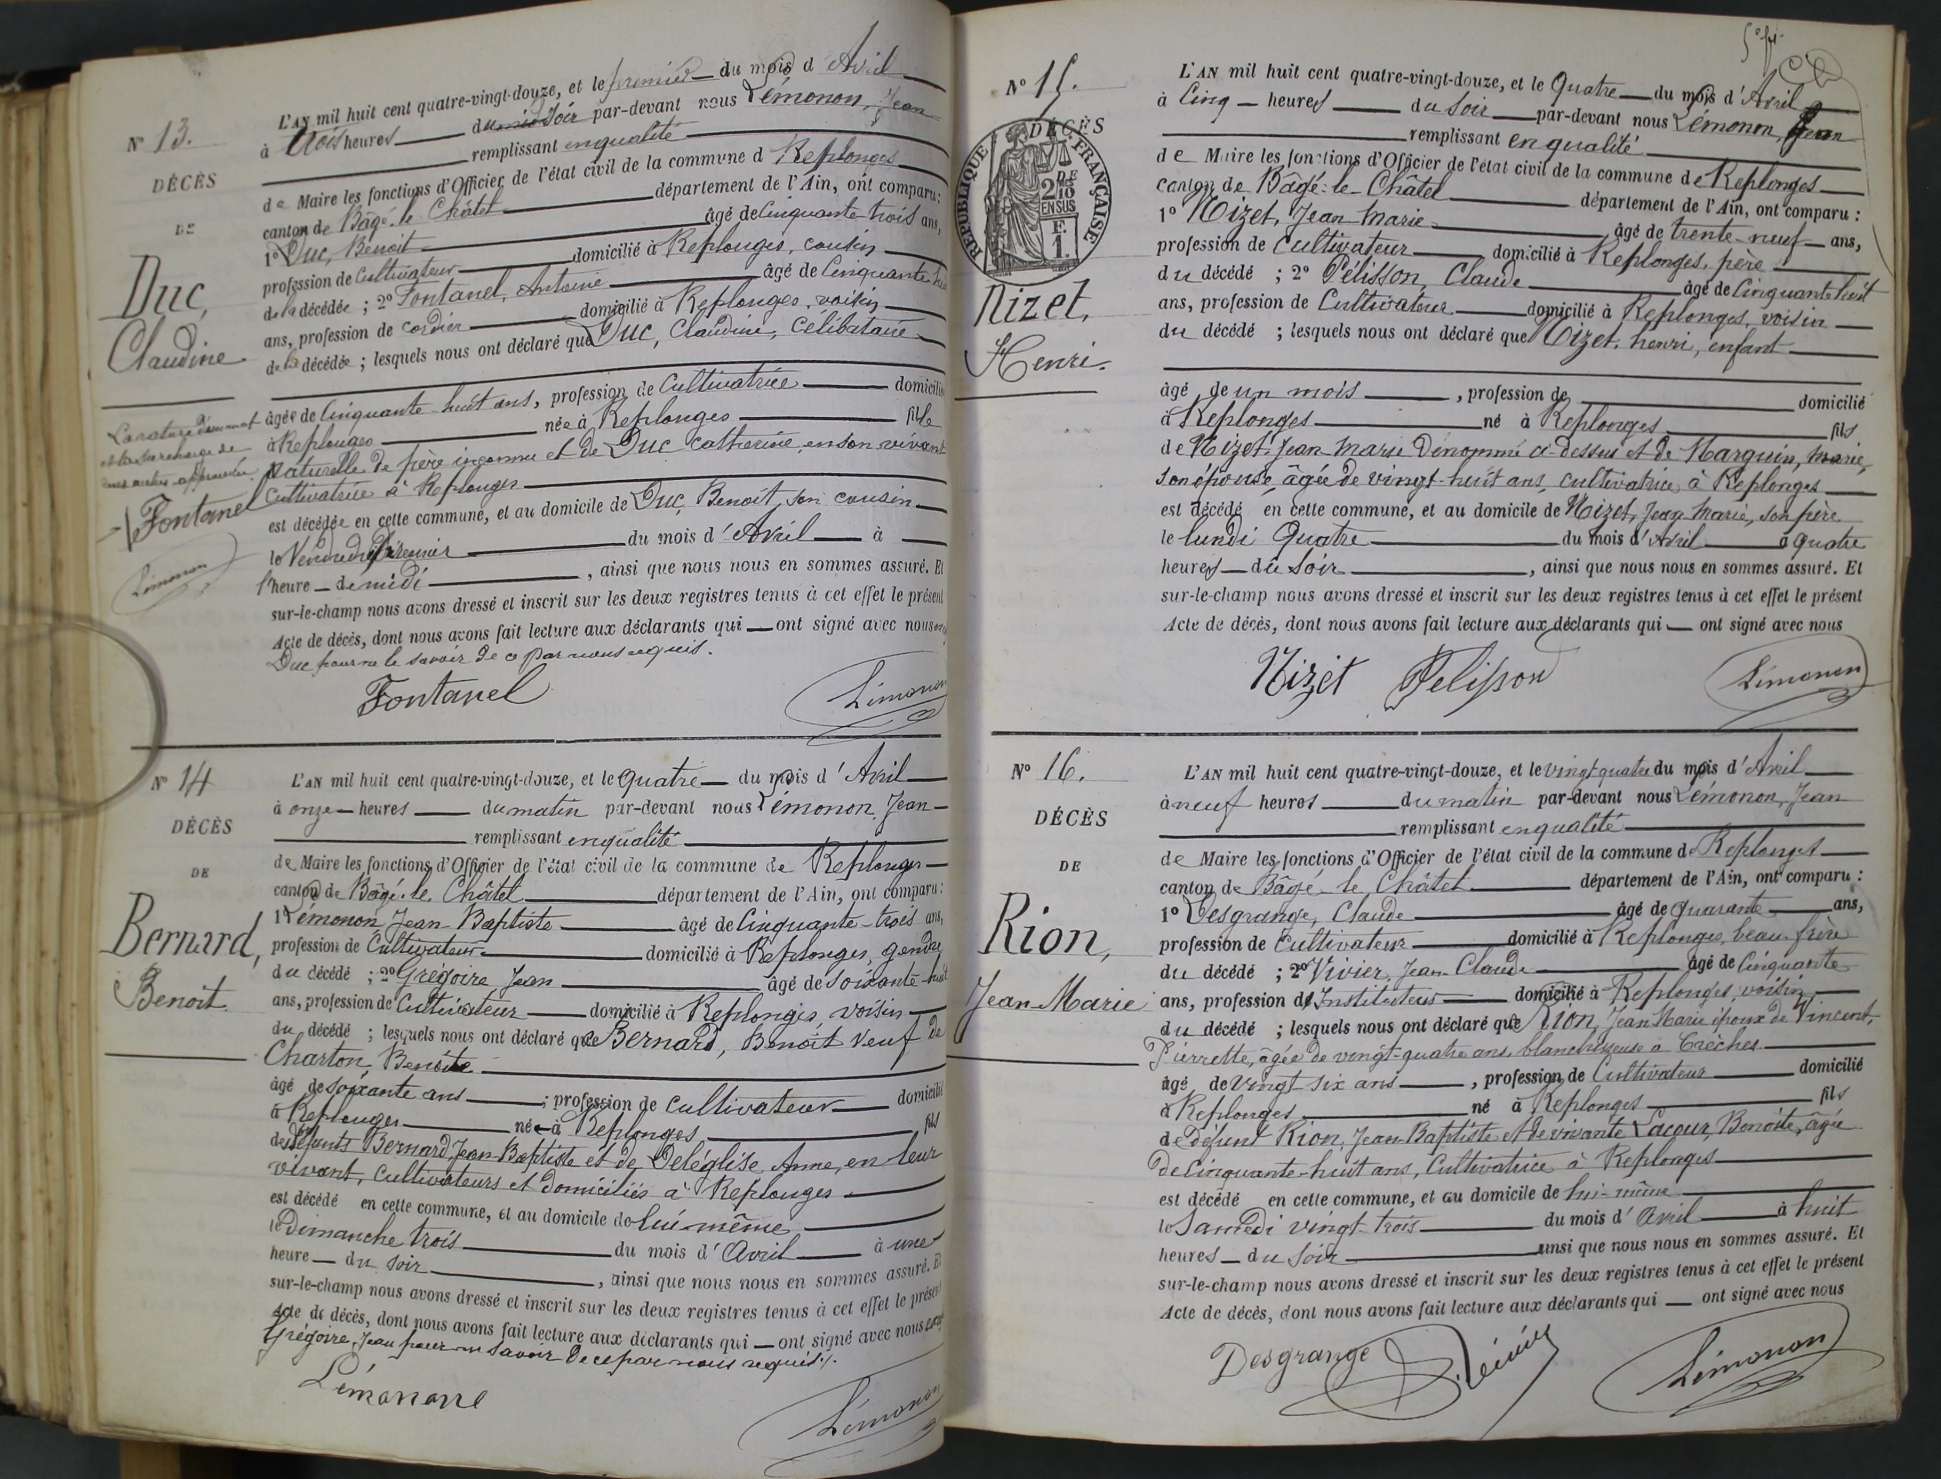 N° 13.
DÉCÈS
DE
Duc,
Claudine
L'AN mil huit cent quatre-vingt-douze, et le premier du mois d'Avril
à trois heures du soir par-devant nous Lémonon, Jean
remplissant en qualité
de Maire les fonctions d'Officier de l'état civil de la commune d Replonges
canton de Bâgé-le-Châtel département de l'Ain, ont comparu :
1° Duc, Benoit âgé de Cinquante-trois ans,
profession de Cultivateur domicilié à Replonges, cousin
de la décédée ; 2° Fontanel, Antoine âgé de Cinquante-huit
ans, profession de cordier domicilié à Replonges, voisin
de la décédée ; lesquels nous ont déclaré que Duc, Claudine, Célibataire
âgée de Cinquante-huit ans, profession de Cultivatrice domiciliée
à Replonges née à Replonges fille
naturelle de père inconnu et de Duc Catherine, en son vivant
cultivatrice à Replonges
est décédée en cette commune, et au domicile de Duc, Benoit, son cousin
le Vendredi Premier du mois d'Avril à
l'heure de midi, ainsi que nous nous en sommes assuré. Et
sur-le-champ nous avons dressé et inscrit sur les deux registres tenus à cet effet le présent
Acte de décès, dont nous avons fait lecture aux déclarants qui ont signé avec nous
Duc pour ne le savoir de ce par nous requis.
La rature d'un mot
et la surcharge de
approuvées
Fontanel
Lémonon
Fontanel Lémonon
N° 14
DÉCÈS
DE
Bernard,
Benoit
L'AN mil huit cent quatre-vingt-douze, et le quatre du mois d'Avril
à onze heures du matin par-devant nous Lémonon, Jean
remplissant en qualité
de Maire les fonctions d'Officier de l'état civil de la commune de Replonges
canton de Bâgé-le-Châtel département de l'Ain, ont comparu :
1° Lémonon, Jean Baptiste âgé de Cinquante-trois ans,
profession de Cultivateur domicilié à Replonges, gendre
du décédé ; 2° Grégoire, Jean âgé de soixante-huit
ans, profession de Cultivateur domicilié à Replonges, voisin
du décédé ; lesquels nous ont déclaré que Bernard, Benoit veuf de
Charton, Benoite
âgé de soixante ans, profession de cultivateur domicilié
à Replonges né à Replonges fils
de défunts Bernard, Jean Baptiste et de Deléglise, Anne, en leur
vivant, cultivateurs et domiciliés à Replonges
est décédé en cette commune, et au domicile de lui-même
le dimanche trois du mois d'Avril à une
heure du soir, ainsi que nous nous en sommes assuré. Et
sur-le-champ nous avons dressé et inscrit sur les deux registres tenus à cet effet le présent
Acte de décès, dont nous avons fait lecture aux déclarants qui ont signé avec nous
Grégoire, Jean pour ne savoir de ce par nous requis.
Lémonon
Lémonon
N° 15.
DÉCÈS
RÉPUBLIQUE FRANÇAISE
2/10 EN SUS
F. 1.
Nizet,
Henri.
L'AN mil huit cent quatre-vingt-douze, et le Quatre du mois d'Avril
à Cinq heures du soir par-devant nous Lémonon, Jean
remplissant en qualité
de Maire les fonctions d'Officier de l'état civil de la commune de Replonges
canton de Bâgé-le-Châtel département de l'Ain, ont comparu :
1° Nizet, Jean Marie âgé de trente-neuf ans,
profession de Cultivateur domicilié à Replonges, père
du décédé ; 2° Pélisson, Claude âgé de Cinquante huit
ans, profession de Cultivateur domicilié à Replonges, voisin
du décédé ; lesquels nous ont déclaré que Nizet, henri, enfant
âgé de un mois, profession de domicilié
à Replonges né à Replonges fils
de Nizet, Jean Marie dénommé ci-dessus et de Marguin, Marie,
son épouse, âgée de vingt-huit ans, cultivatrice, à Replonges
est décédé en cette commune, et au domicile de Nizet, Jean Marie, son père
le lundi Quatre du mois d'Avril à quatre
heures du soir, ainsi que nous nous en sommes assuré. Et
sur-le-champ nous avons dressé et inscrit sur les deux registres tenus à cet effet le présent
Acte de décès, dont nous avons fait lecture aux déclarants qui ont signé avec nous
Nizet Pelisson Lémonon
N° 16.
DÉCÈS
DE
Rion,
Jean-Marie
L'AN mil huit cent quatre-vingt-douze, et le vingt-quatre du mois d'Avril
à neuf heures du matin par-devant nous Lémonon, Jean
remplissant en qualité
de Maire les fonctions d'Officier de l'état civil de la commune de Replonges
canton de Bâgé-le-Châtel département de l'Ain, ont comparu :
1° Desgrange, Claude âgé de quarante ans,
profession de Cultivateur domicilié à Replonges, beau-frère
du décédé ; 2° Vivier, Jean-Claude âgé de Cinquante
ans, profession d'Instituteur domicilié à Replonges, voisin
du décédé ; lesquels nous ont déclaré que Rion, Jean Marie époux de Vincent,
Pierrette, âgée de vingt-quatre ans, blanchisseuse à Crèches
âgé de vingt six ans, profession de Cultivateur domicilié
à Replonges né à Replonges fils
de défunt Rion, Jean-Baptiste et de vivante Lacour, Benoite, âgée
de Cinquante-huit ans, Cultivatrice à Replonges
est décédé en cette commune, et au domicile de lui-même
le Samedi vingt-trois du mois d'Avril à huit
heures du soir ainsi que nous nous en sommes assuré. Et
sur-le-champ nous avons dressé et inscrit sur les deux registres tenus à cet effet le présent
Acte de décès, dont nous avons fait lecture aux déclarants qui ont signé avec nous
Desgrange Vivier Lémonon